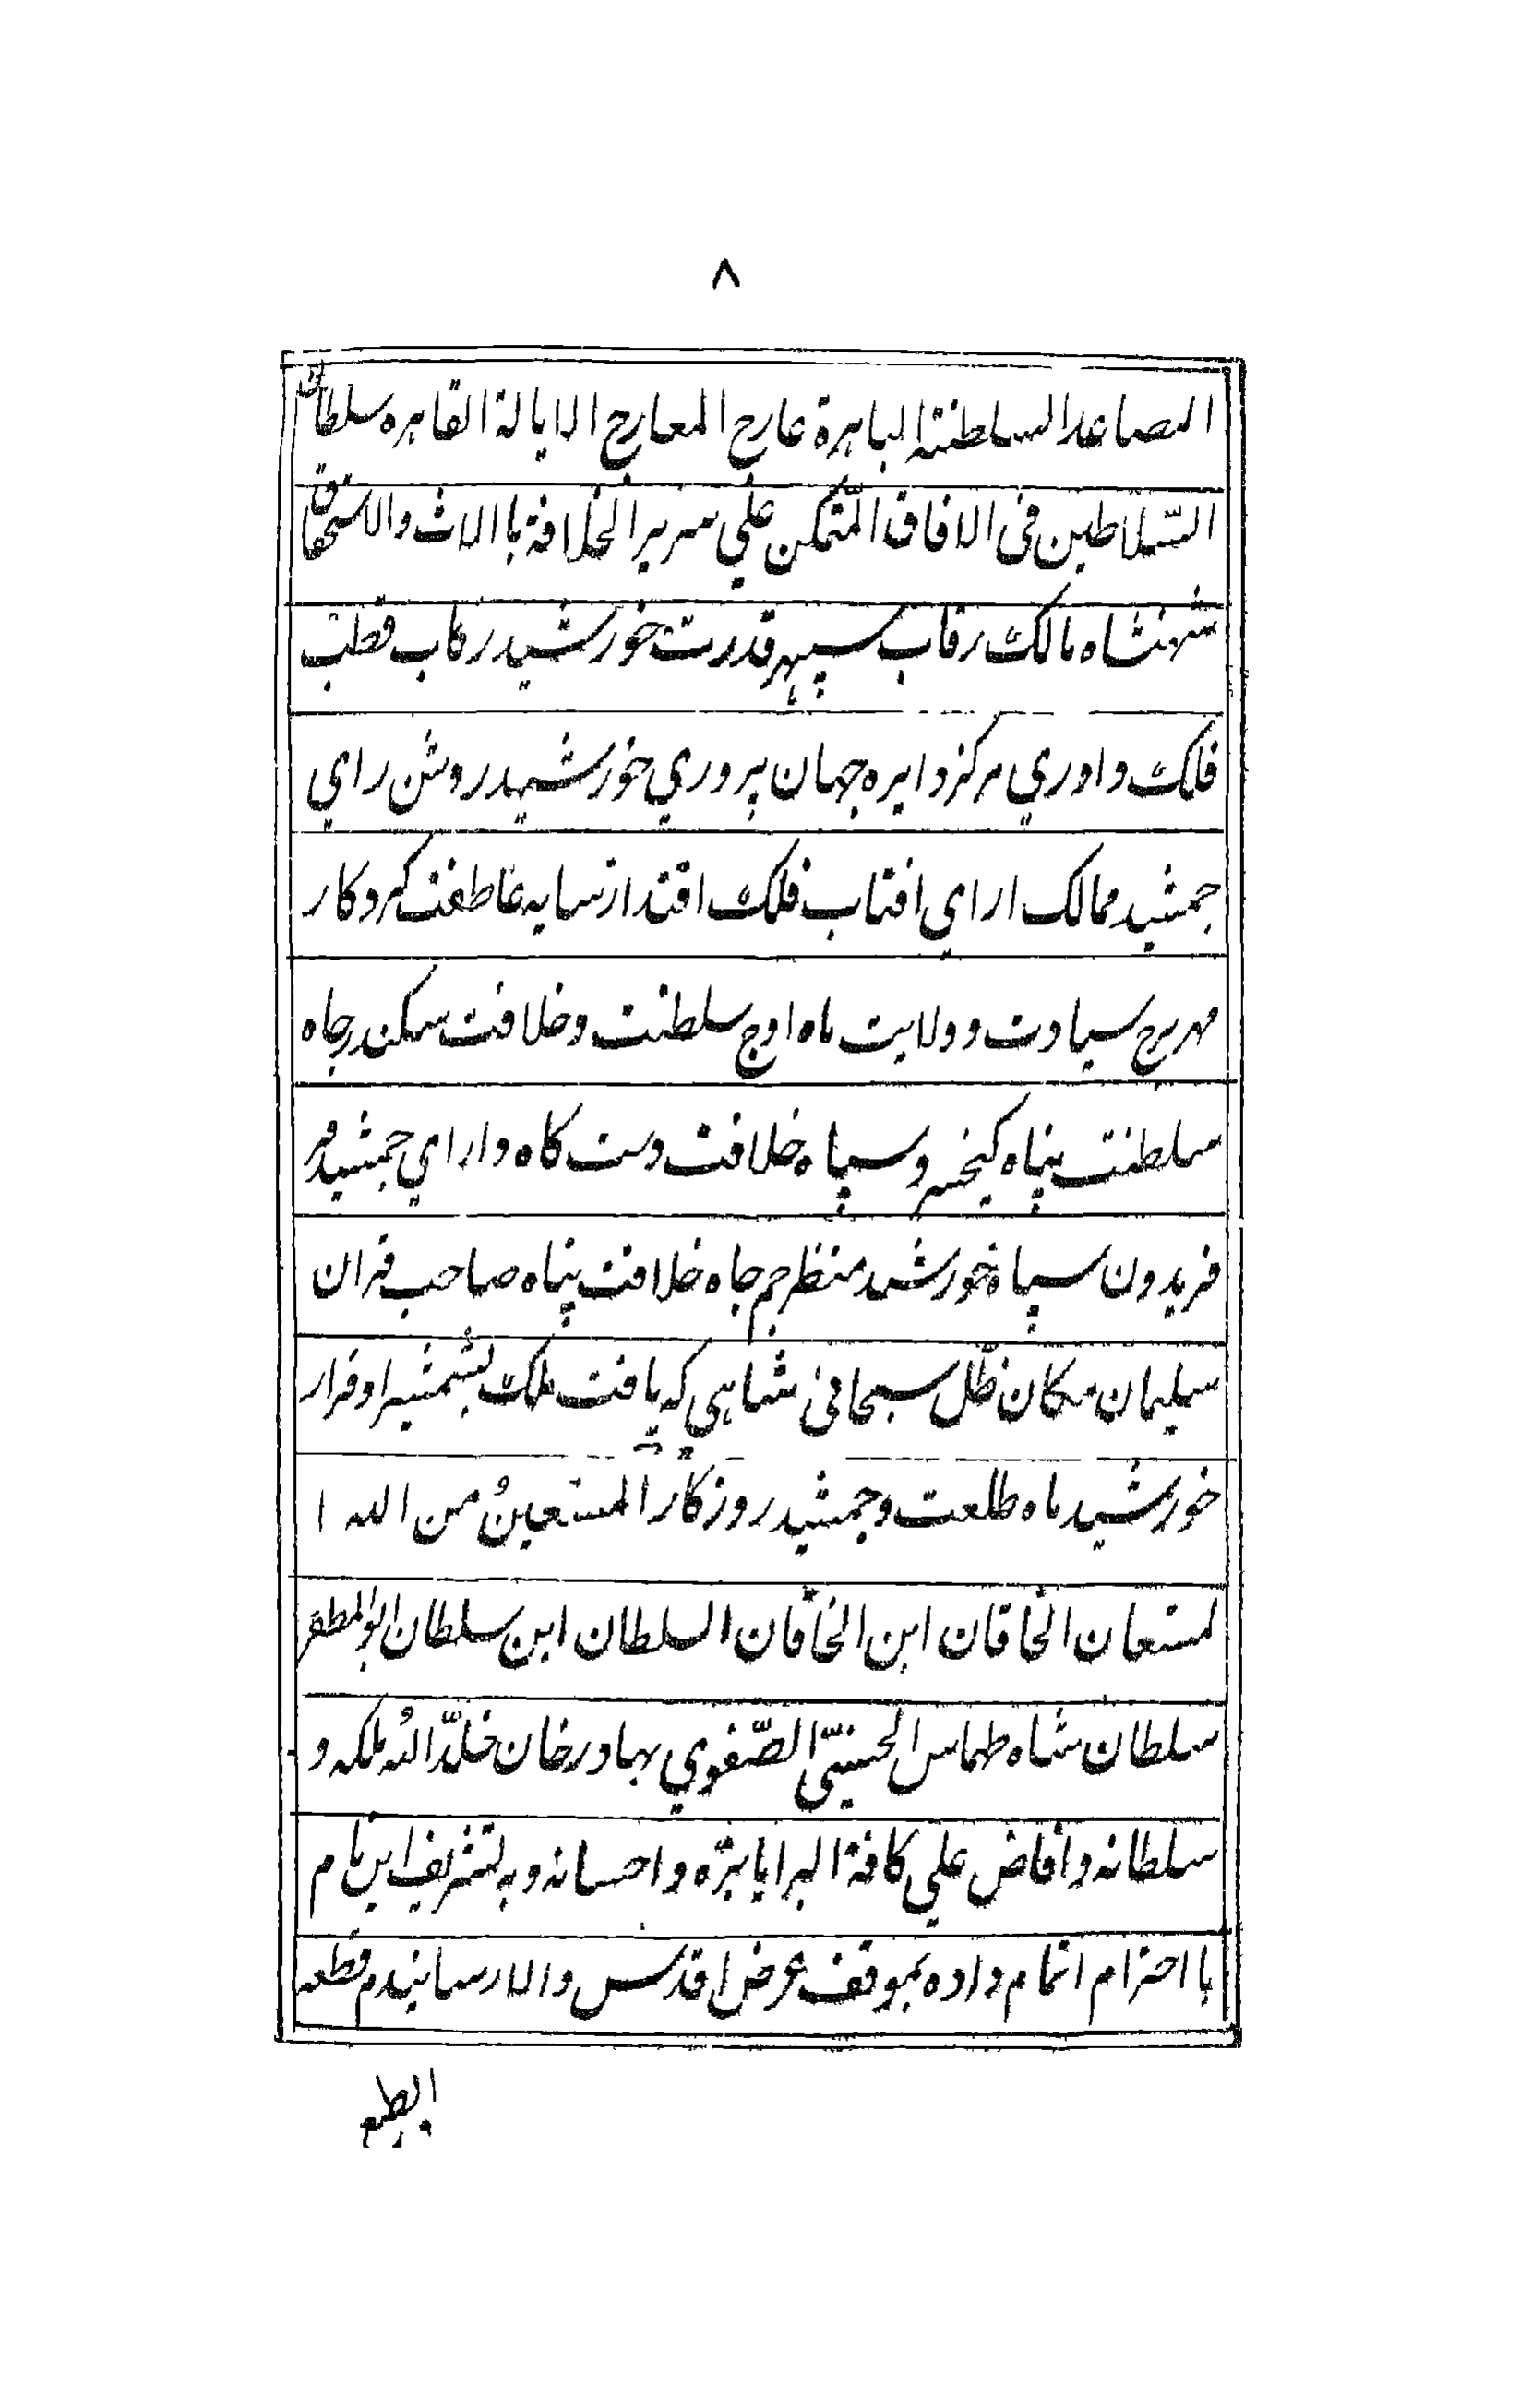 ٨
المصاعد السلطنة الباهرة عارج المعارج الایالة القاهره سلطان
السّلاطین فی الافاق المتّمکن علي سریر الخلافة باالاث والاستحقاق
شهنشاه مالک رقاب سپهر قدرت خورشید رکاب قطب
فلک داوري مرکز دایره جهان پروري خورشید روشن راي
جمشید ممالک اراي افتاب فلک اقتدار سایه عاطفت کردکار
مهر برج سیادت و ولایت ماه اوج سلطنت و خلافت سکندر جاه
سلطنت پناه کیخسرو سپاه خلافت دست کاه داراي جمشید فر
فریدون سپاه خورشید منظر جم جاه خلافت پناه صاحب قران
سلیمان مکان ظّل سبحانی شاهی که یافت ملک بشمشیر او قرار
خورشید ماه طلعت و جمشید روزکار المستعینُ من الله ا
لمستعان الخاقان ابن الخاقان السلطان ابن سلطان ابوالمظفر
سلطان شاه طهماس الحسینیّ الصّفوي بهادر خان خلّد اللهُ ملکه و
سلطانه و افاض علي کافة البرایا برّه و احسانه و به تشریف این نام
با احترام اتمام داده بموقف عرض اقدس والا رسانیدم قطعه